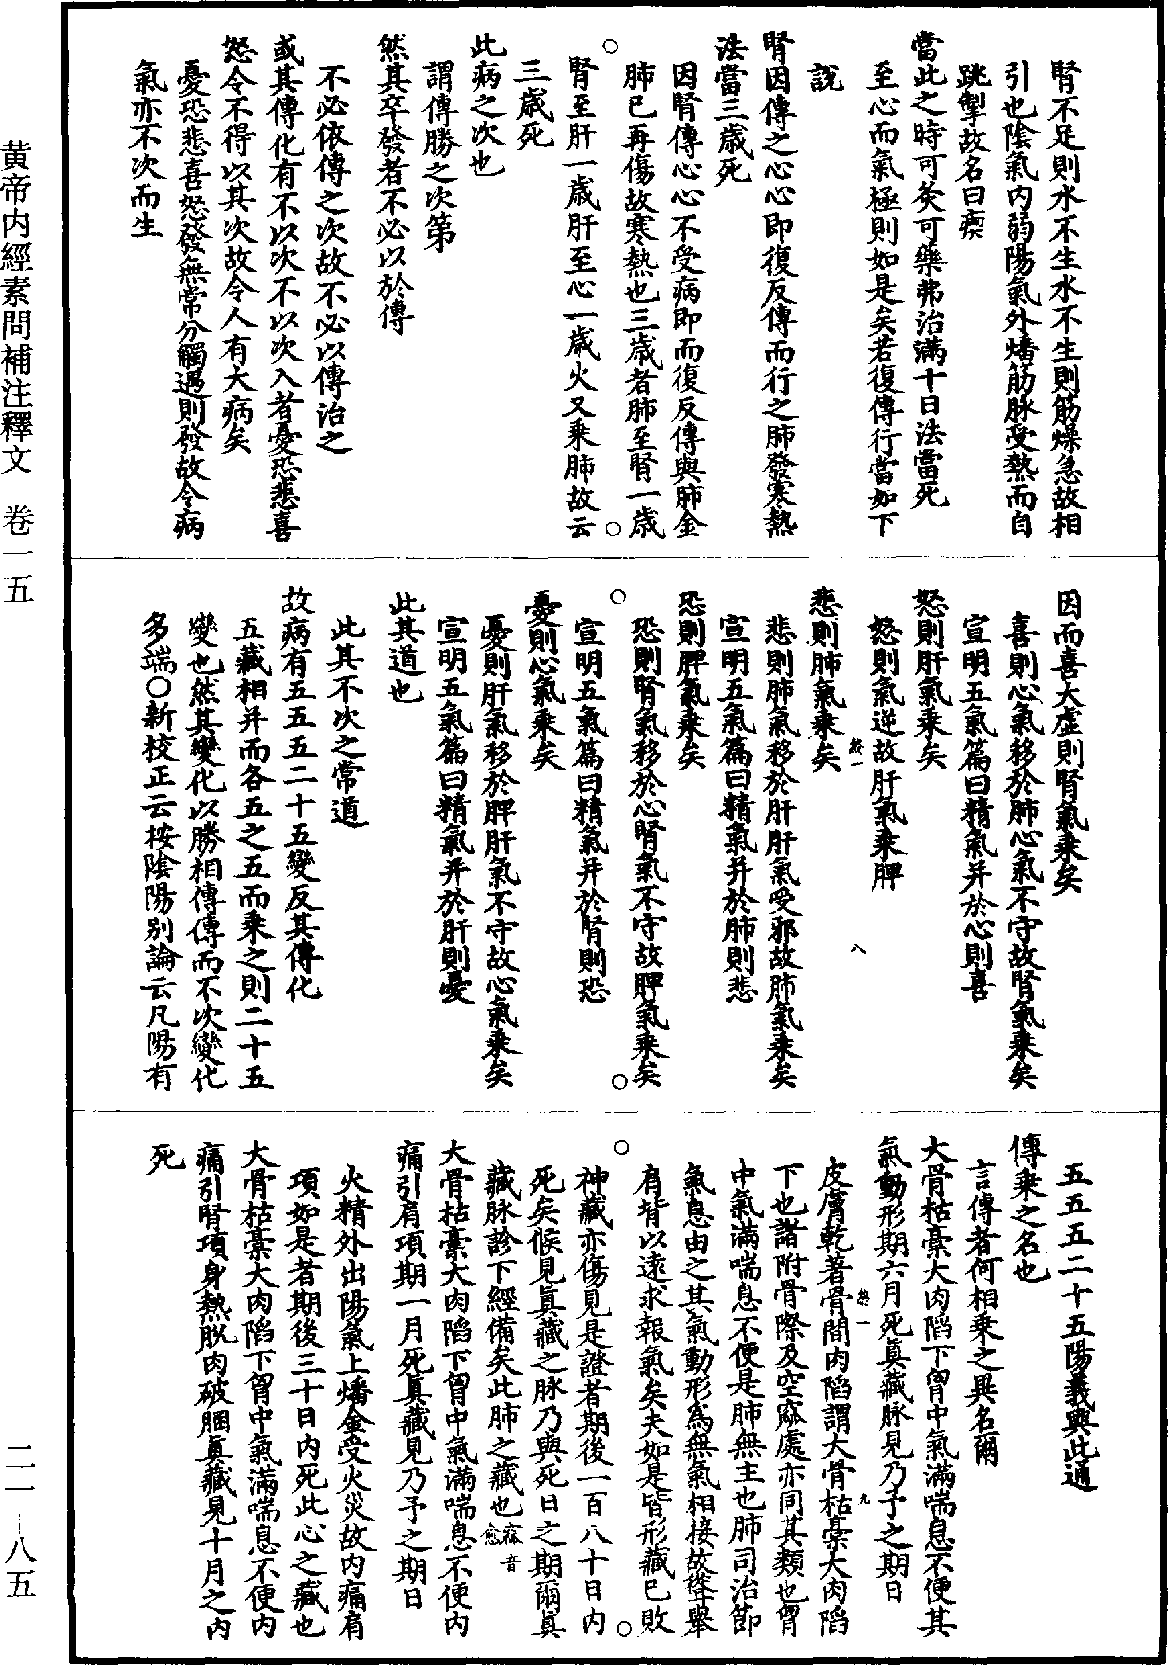 腎不足則水不生水不生則筋燥急故相
引也陰氣內弱陽氣外燔筋脉受熱而自
跳掣故名曰瘈
當此之時可灸可藥弗治滿十日法當死
至心而氣極則如是矣若復傳行當如下
說
腎因傳之心心即復反傳而行之肺發寒熱
法當三歲死
因腎傳心心不受病即而復反傳與肺金
肺已再傷故寒熱也三歲者肺至腎一歲
腎至肝一歲肝至心一歲火又乘肺故云
三歲死
此病之次也
謂傳勝之次第
然其卒發者不必以於傳
不必依傳之次故不必以傳治之
或其傳化有不以次不以次入者憂恐悲喜
怒令不得以其次故令人有大病矣
憂恐悲喜怒發無常分觸遇則發故令病
氣亦不次而生
因而喜大虛則腎氣乘矣
喜則心氣移於肺心氣不守故腎氣乘矣
宣明五氣篇曰精氣并於心則喜
怒則肝氣乘矣
怒則氣逆故肝氣乘脾
悲則肺氣乘矣
悲則肺氣移於肝肝氣受邪故肺氣乘矣
宣明五氣篇曰精氣并於肺則悲
恐則脾氣乘矣
恐則腎氣移於心腎氣不守故脾氣乘矣
宣明五氣篇曰精氣并於腎則恐
憂則心氣乘矣
憂則肝氣移於脾肝氣不守故心氣乘矣
宣明五氣篇曰精氣并於肝則憂
此其道也
此其不次之常道
故病有五五五二十五變反其傳化
五藏相并而各五之五而乘之則二十五
變也然其變化以勝相傳傳而不次變化
多端○新校正云按陰陽別論云凡陽有
五五五二十五陽義與此通
傳乘之名也
言傳者何相乘之異名爾
大骨枯藁大肉陷下胷中氣滿喘息不便其
氣動形期六月死真藏脉見乃予之期日
皮膚乾著骨間肉陷謂大骨枯藁大肉陷
下也諸附骨際及空窳處亦同其類也胷
中氣滿喘息不便是肺無主也肺司治節
氣息由之其氣動形為無氣相接故聳舉
肩背以遠求報氣矣夫如是皆形藏已敗
神藏亦傷見是證者期後一百八十日內
死矣候見真藏之脉乃與死日之期爾真
藏脉診下經備矣此肺之藏也窳音愈
大骨枯藁大肉陷下胷中氣滿喘息不便內
痛引肩項期一月死真藏見乃予之期日
火精外出陽氣上燔金受火災故內痛肩
項如是者期後三十日內死此心之藏也
大骨枯藁大肉陷下胷中氣滿喘息不便內
痛引肩項身熱脫肉破䐃真藏見十月之內
死
黃帝內經素問補注釋文 卷一五
二一—八五